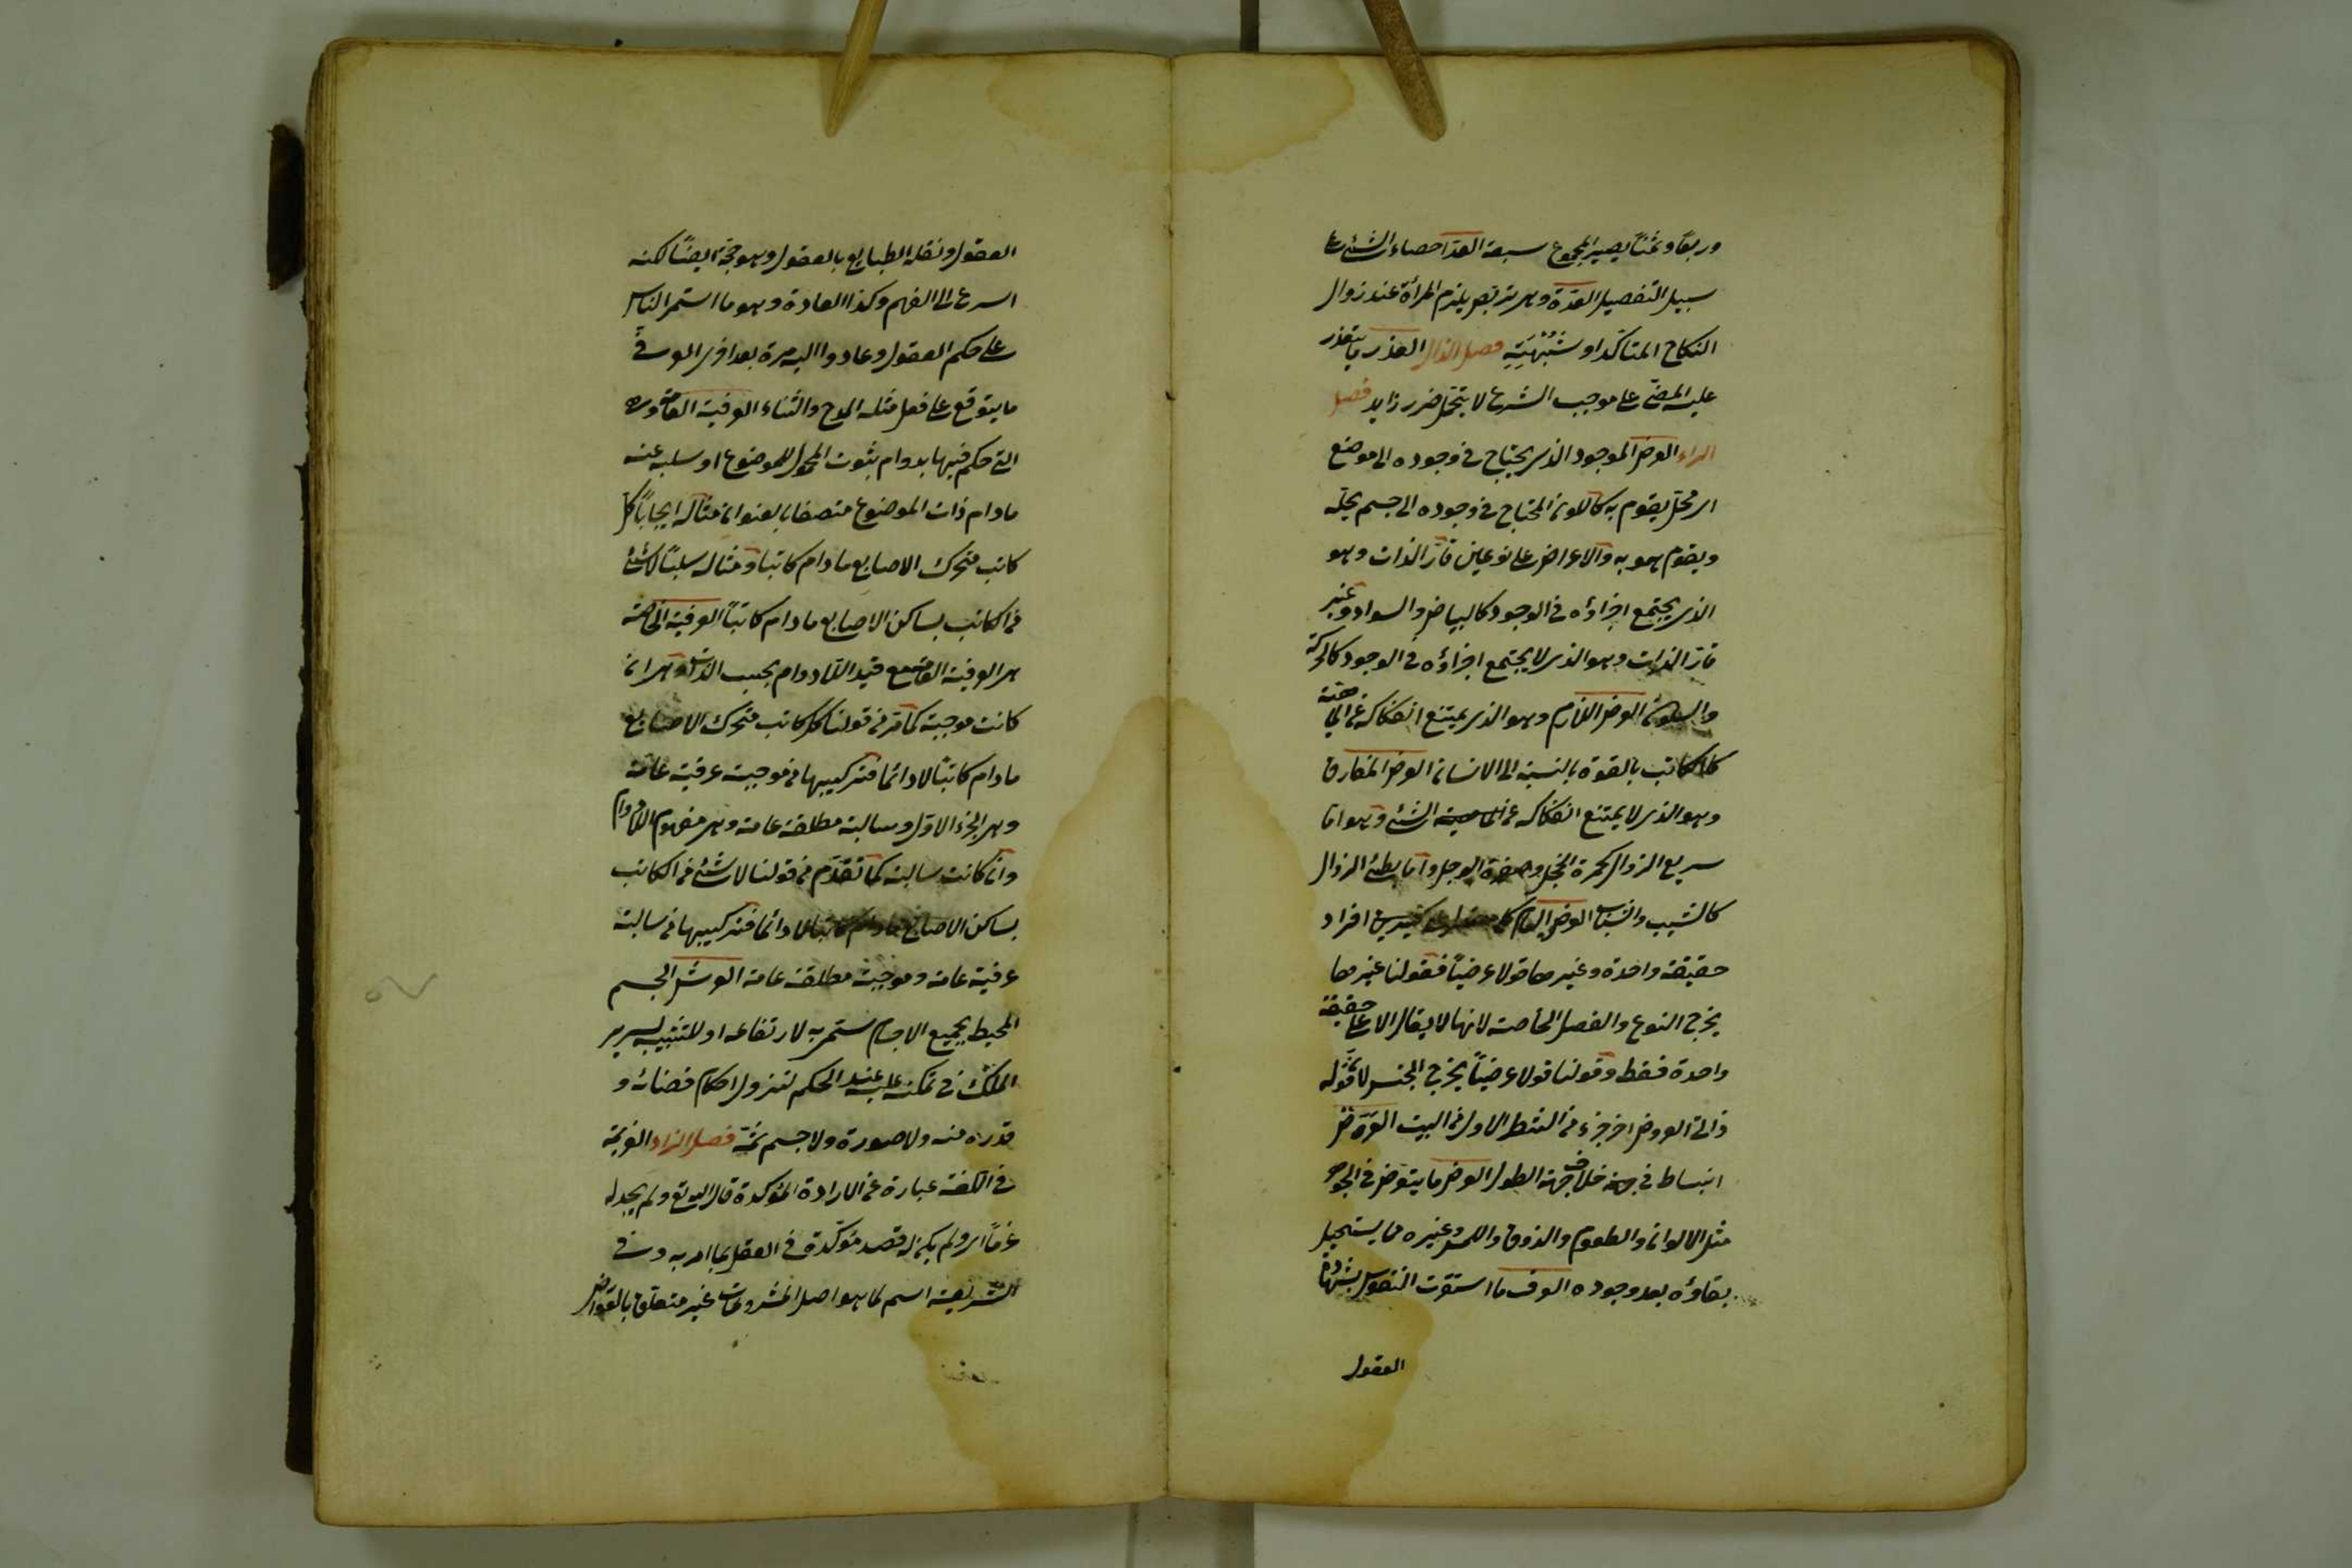 وربعًا وثمنًا يصير المجموع سبعة العدّ احصاء الشئ على
سبيل التفصيل العدّة وهى تربّص يلزم المرأة عند زوال
النكاح المتاكّد او شبهته فصل الذال العذر ما يتعذر
عليه المضىّ على موجب الشرع الا بتحمل ضرر زايد فصل
الراء العرض الموجود الذى يحتاج فى وجوده الى موضع
اى محل يقوم به كاللون المحتاج فى وجوده الى جسم يحلّه
ويقوم هو به والاعراض على نوعين قارّ الذات وهو
الذى يجتمع اجزاؤه فى الوجود كالبياض والسواد وغير
قارّ الذات وهو الذى لا يجتمع اجزاؤه فى الوجود كالحركة
والسكون العرض اللازم وهو الذى يمتنع انفكاكه عن الماهية
كالكاتب بالقوة بالنسبة الى الانسان العرض المفارق
وهو الذى لا يمتنع انفكاكه عن الماهية الشئ وهو اما
سريع الزوال كحمرة الخجل وصفرة الوجل واما بطئ الزوال
كالشيب والشباب العرض العام كلى مقول على كثيرين افراد
حقيقة واحدة وغيرها قولا عرضيًا فقولنا غيرها
يخرج النوع والفصل الخاصة لانها لا يقال الا على حقيقة
واحدة فقط وقولنا قولا عرضيًا يخرج الجنس لانه قوله
ذاتى العروض اخر جزء من الشطر الاول من البيت العرض
انبساط فى جهة خلاف جهة الطول العرض ما يتعرض فى الجوهر
مثل الالوان والطعوم والذوق واللمس وغيره مما يستحيل
بقاؤه بعد وجوده العرف ما استقرت النفوس بشهادة
العقول
العقول ونقلة الطبايع بالعقول وهو حجة ايضًا لكنه
اسرع الى الفهم وكذا العادة وهو ما استمر الناس
على حكم العقول وعادوا اليه مرة بعد اخرى العرف
ما يتوقع على فعل مثله المدح والثناء العرفية العامة وهى
التى حكم فيها بدوام بثوت المحمول للموضوع او سلبه عنه
مادام ذات الموضوع متصفا بالعنوان مثاله ايجابًا كل
كاتب متحرك الاصابع مادام كاتبا ومثاله سلبًا لا شئ
من الكاتب بساكن الاصابع مادام كاتبًا العرفية الخاصة
هى العرفية العامة مع قيد اللادوام بحسب الذات وهى ان
كانت موجبة كما مر فى قولنا كل كاتب متحرك الاصابع
مادام كاتبًا لا دائما فتركيبها من موجبة عرفية عامة
وهى الجزء الاول وسالبة مطلقة عامة وهى مفهوم اللادوام
وان كانت سالبة كما تقدّم فى قولنا لا شئ من الكاتب
بساكن الاصابع مادام كاتبا لا دائما فتركيبها من سالبة
عرفية عامة وموجبة مطلقة عامة العرش الجسم
المحيط بجميع الاجسام سمى به لارتفاعه او للتشبيه بسرير
الملك فى تمكنه عليه عند الحكم لنزول احكام قضائه و
قدره منه ولا صورة ولا جسم ثمّة فصل الزاء العزيمة
فى اللغة عبارة عن الارادة المؤكدة قال الله تع ولم نجد له
عزمًا اى ولم يكن له قصد مؤكّد فى الفعل بما امر به وفى
الشريعة اسم لما هو اصل المشروعات غير متعلق بالعوارض